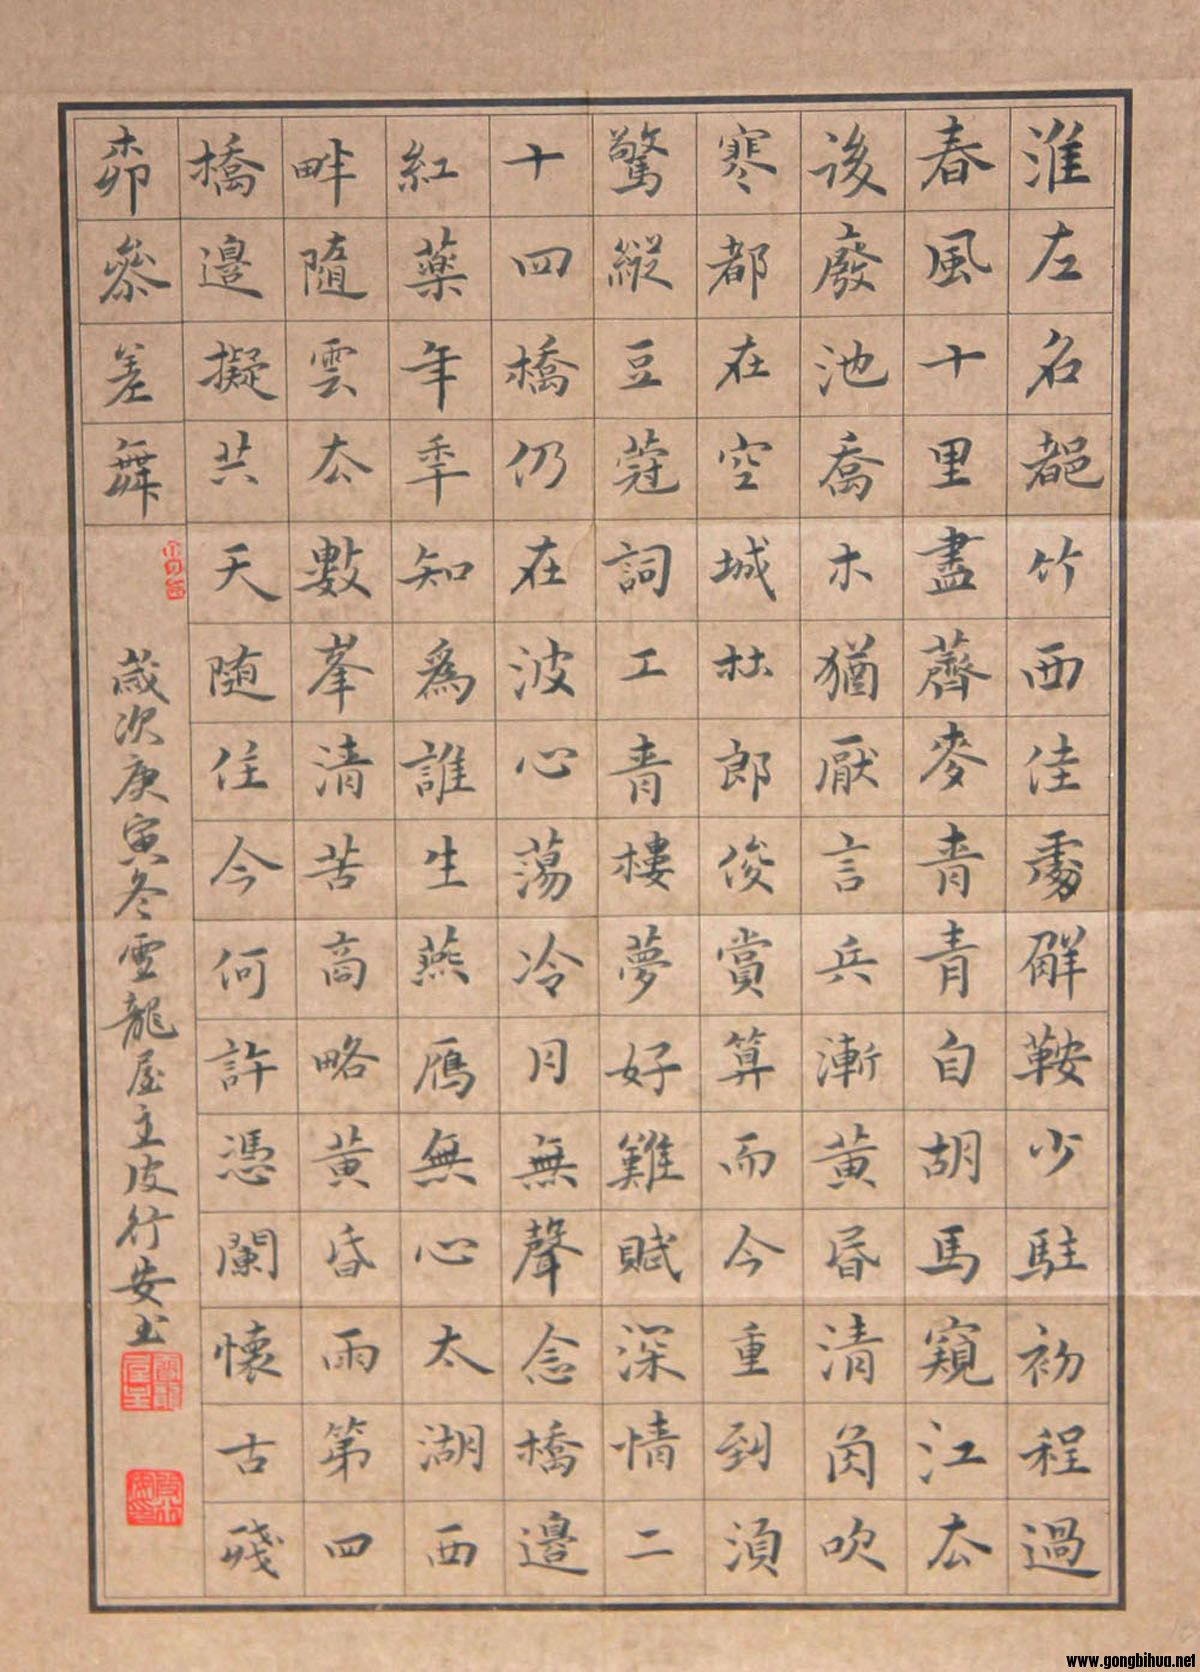 淮左名都竹西佳處解鞍少駐初程過
春風十里盡薺麥青青自胡馬窺江去
後廢池喬木猶厭言兵漸黃昏清角吹
寒都在空城杜郎俊賞算而今重到須
驚縱豆蔻詞工青樓夢好難賦深情二
十四橋仍在波心蕩冷月無聲念橋邊
紅藥年年知爲誰生燕雁無心太湖西
畔隨雲去數峯清苦商略黃昏雨第四
橋邊擬共天随住今何許憑闌懷古殘
柳參差舞
歲次庚寅冬雲龍屋主皮行安書
www.gongbihua.net